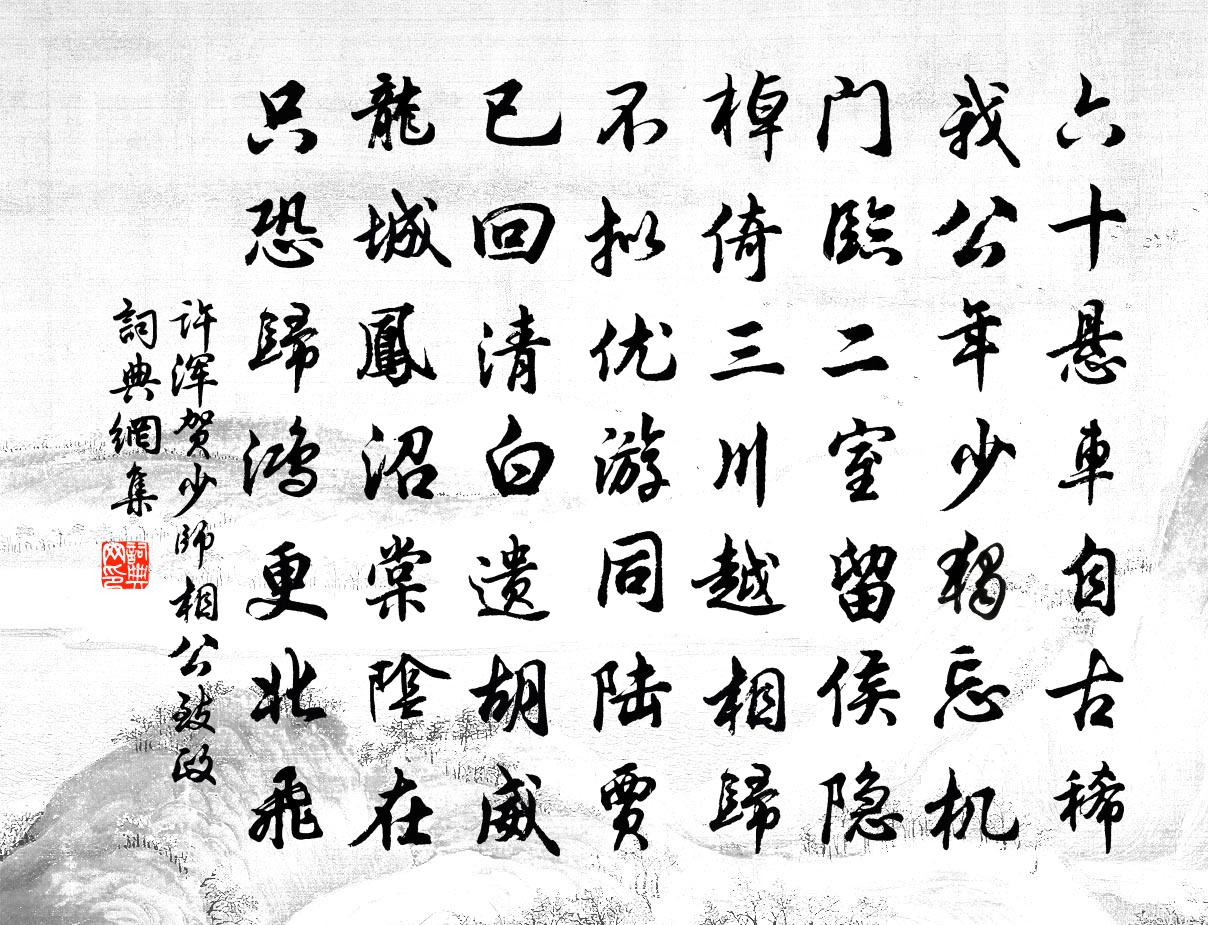 六十悬車自古稀
我公年少獨忘机
門臨二室留侯隐
棹倚三川越相歸
不拟优游同陆賈
已回清白遗胡威
龍城鳳沼棠陰在
只恐歸鴻更北飛
许浑贺少師相公致政
詞典網集
詞典網印